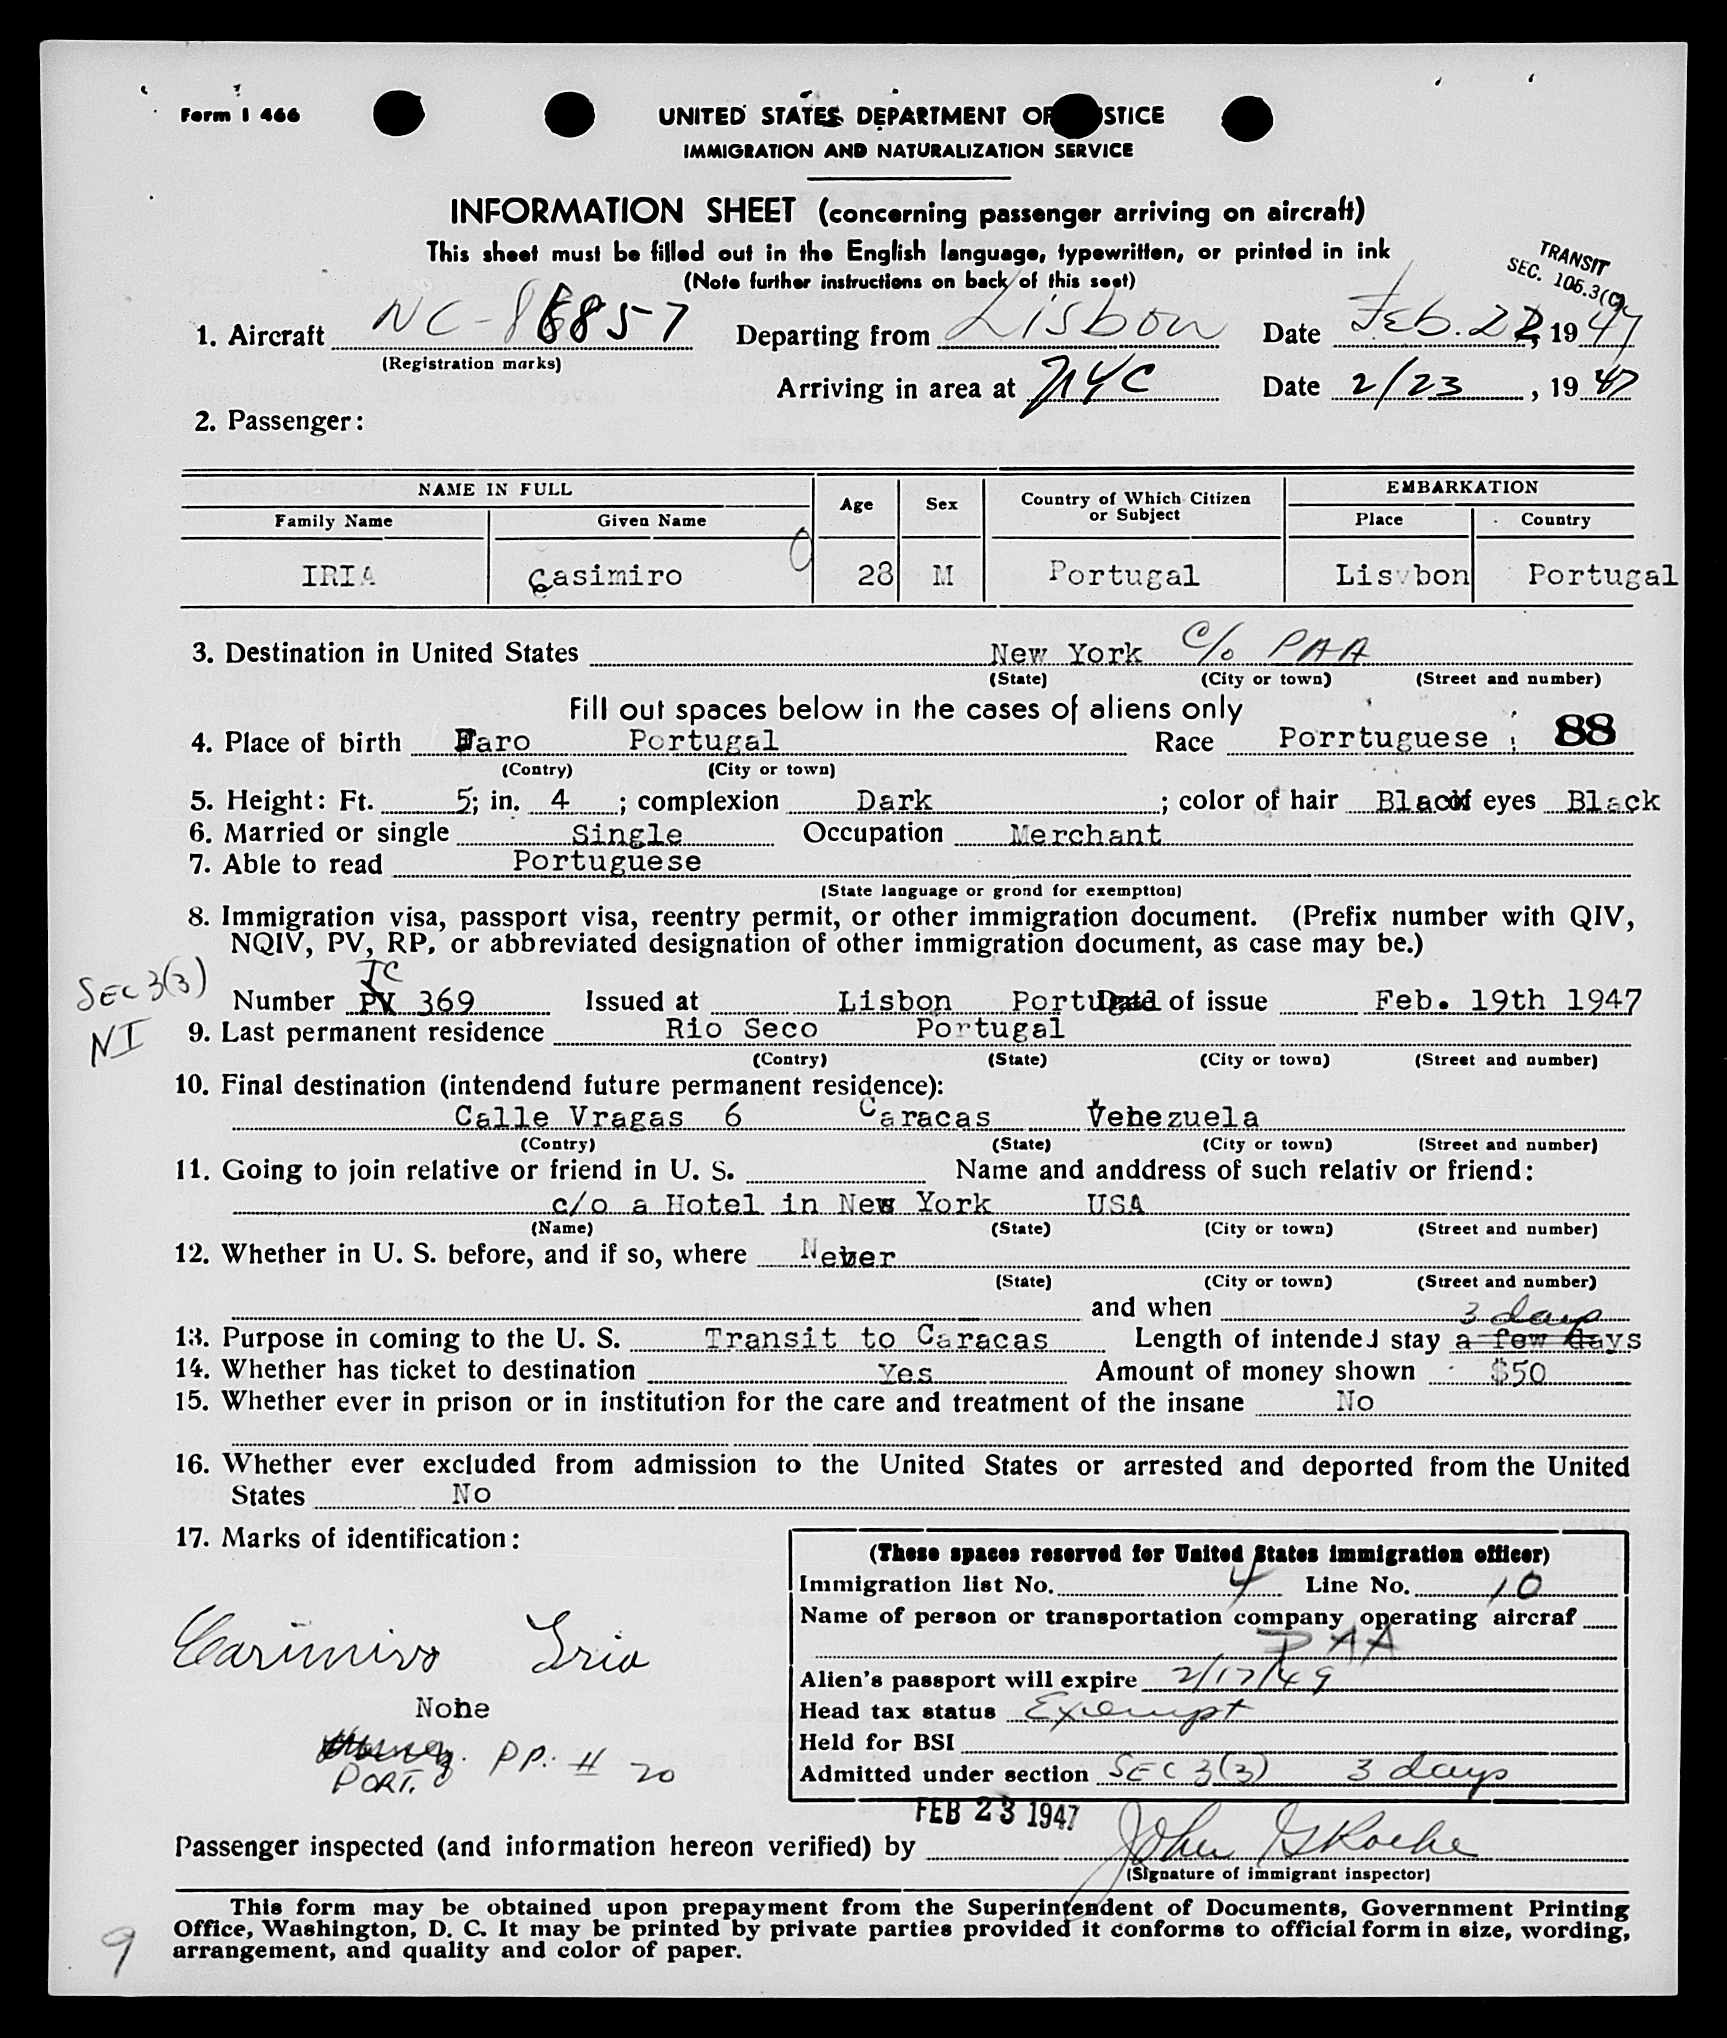 Form I 466
UNITED STATES DEPARTMENT OF JUSTICE
IMMIGRATION AND NATURALIZATION SERVICE
INFORMATION SHEET (concerning passenger arriving on aircraft)
This sheet must be filled out in the English language, typewritten, or printed in ink
(Note further instructions on back of this seet)
TRANSIT
SEC. 105.3(C)
1. Aircraft NC-88857 Departing from Lisbon Date Feb. 22, 1947
(Registration marks)
Arriving in area at NYC Date 2/23, 1947
2. Passenger:
NAME IN FULL Age Sex Country of Which Citizen or Subject EMBARKATION
Family Name Given Name Place Country
IRIA Casimiro 28 M Portugal Lisvbon Portugal
3. Destination in United States New York C/o PAA
(State) (City or town) (Street and number)
Fill out spaces below in the cases of aliens only
4. Place of birth Faro Portugal Race Porrtuguese 88
(Contry) (City or town)
5. Height: Ft. 5; in. 4; complexion Dark; color of hair Black of eyes Black
6. Married or single Single Occupation Merchant
7. Able to read Portuguese
(State language or grond for exemption)
8. Immigration visa, passport visa, reentry permit, or other immigration document. (Prefix number with QIV,
NQIV, PV, RP, or abbreviated designation of other immigration document, as case may be.)
SEC 3(3)
NI
TC
Number PV 369 Issued at Lisbon Portugal Date of issue Feb. 19th 1947
9. Last permanent residence Rio Seco Portugal
(Contry) (State) (City or town) (Street and number)
10. Final destination (intendend future permanent residence):
Calle Vragas 6 Caracas Venezuela
(Contry) (State) (City or town) (Street and number)
11. Going to join relative or friend in U. S. Name and anddress of such relativ or friend:
c/o a Hotel in New York USA
(Name) (State) (City or town) (Street and number)
12. Whether in U. S. before, and if so, where Never
(State) (City or town) (Street and number)
and when
3 days
13. Purpose in coming to the U. S. Transit to Caracas Length of intended stay a few days
14. Whether has ticket to destination Yes Amount of money shown $50
15. Whether ever in prison or in institution for the care and treatment of the insane No
16. Whether ever excluded from admission to the United States or arrested and deported from the United
States No
17. Marks of identification:
(These spaces reserved for United States immigration officer)
Immigration list No. 4 Line No. 10
Name of person or transportation company operating aircraf
PAA
Alien's passport will expire 2/17/49
Head tax status Exempt
Held for BSI
Admitted under section SEC 3(3) 3 days
Casimiro Iria
None
PORT. PP. # 20
FEB 23 1947
Passenger inspected (and information hereon verified) by John G Roche
(Signature of immigrant inspector)
This form may be obtained upon prepayment from the Superintendent of Documents, Government Printing
Office, Washington, D. C. It may be printed by private parties provided it conforms to official form in size, wording,
arrangement, and quality and color of paper.
9